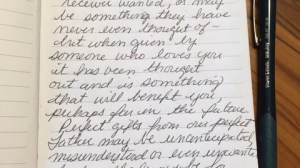 receiver wanted, or may
be something they have
never even thought of -
but when given by
someone who loves you
it has been thought
out and is something
that will benefit you
perhaps far in the future.
Perfect gifts from our perfect
Father may be unanticipated
misunderstood or even unwanted